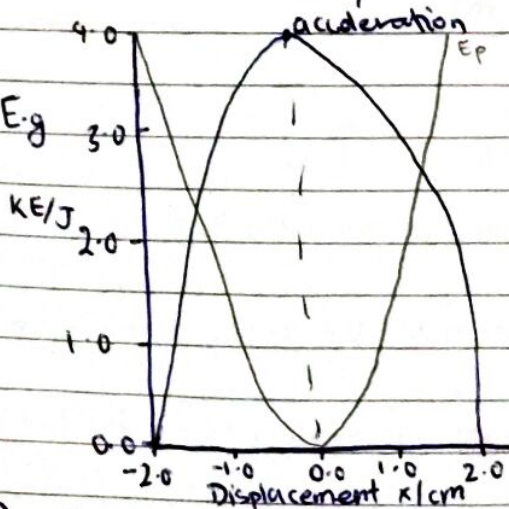 acceleration
4.0
Ep
E.g
3.0
KE/J
2.0
1.0
0.0
-2.0 -1.0 0.0 1.0 2.0
Displacement x/cm